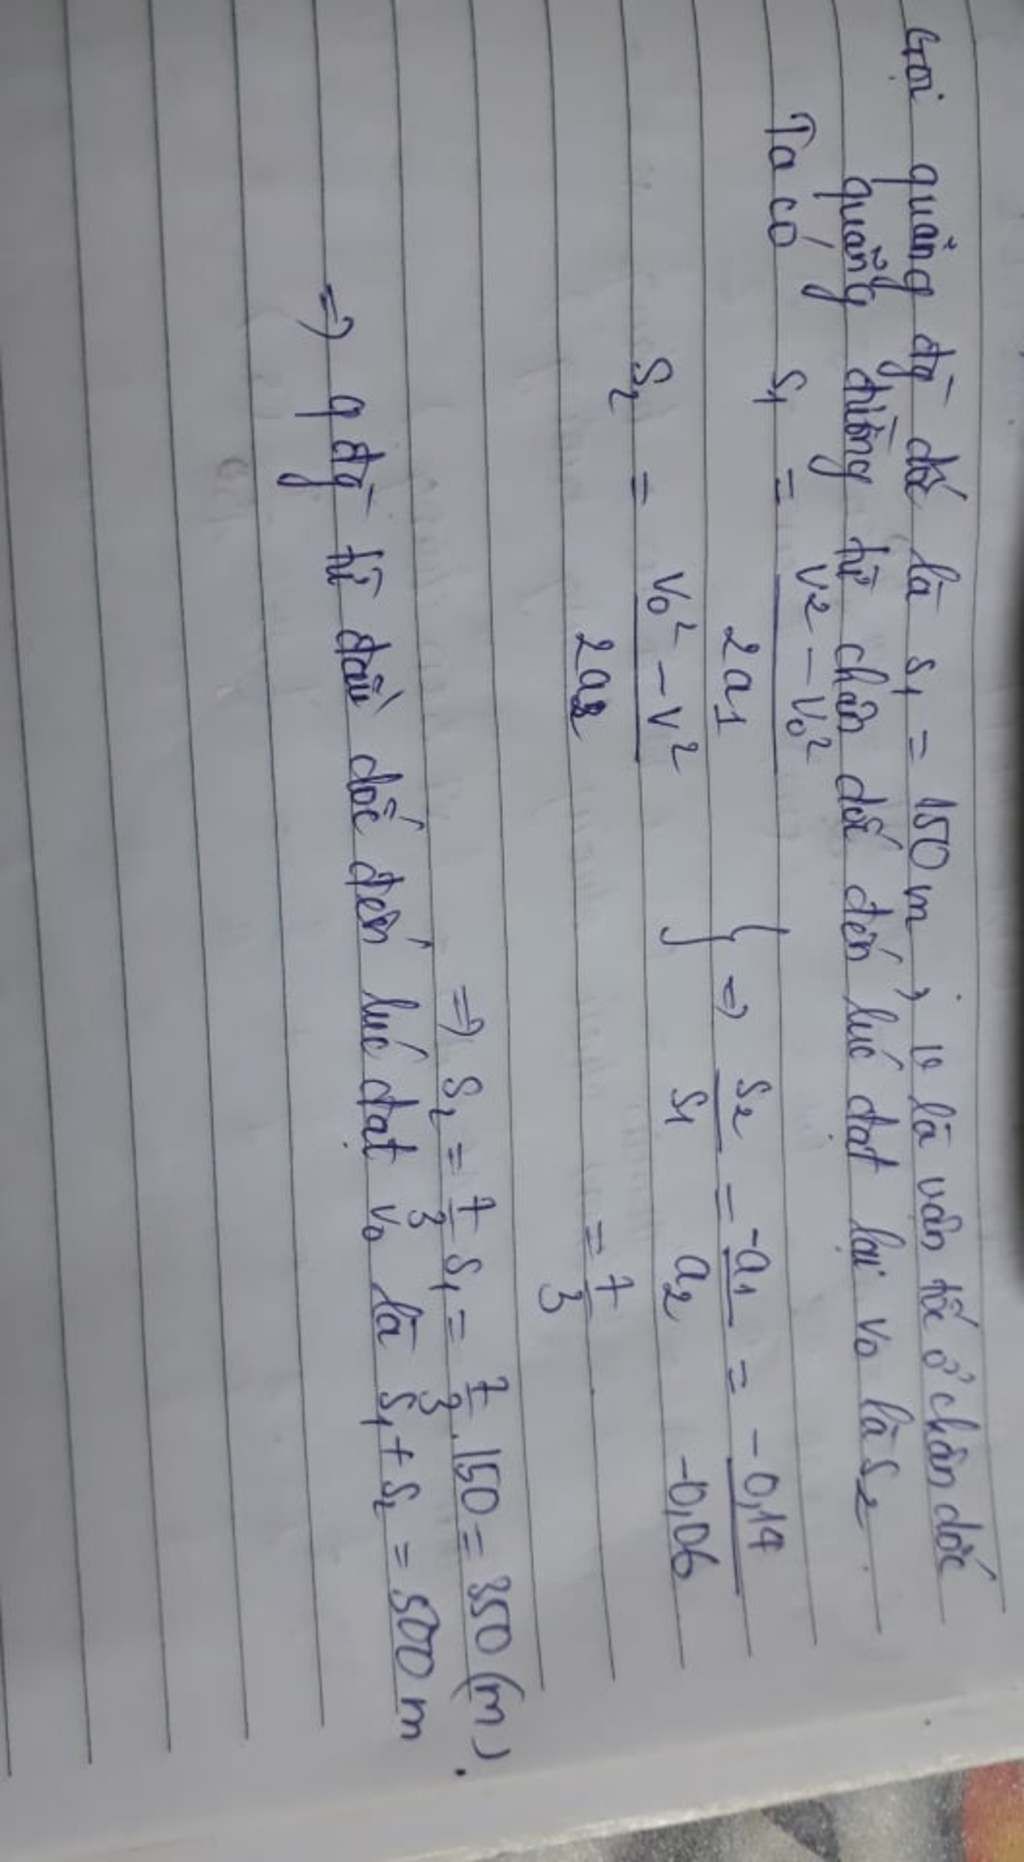 Gọi quãng đg dốc là s₁ = 150 m, v là vận tốc ở chân dốc
quãng đường từ chân dốc đến lúc đạt lại v₀ là s₂
Ta có s₁ = (v² - v₀²) / 2a₁
S₂ = (v₀² - v²) / 2a₂
} => s₂/s₁ = -a₁/a₂ = -0,14/-0,06
= 7/3
=> s₂ = 7/3 s₁ = 7/3 . 150 = 350 (m).
=> q đg từ đầu dốc đến lúc đạt v₀ là s₁ + s₂ = 500 m